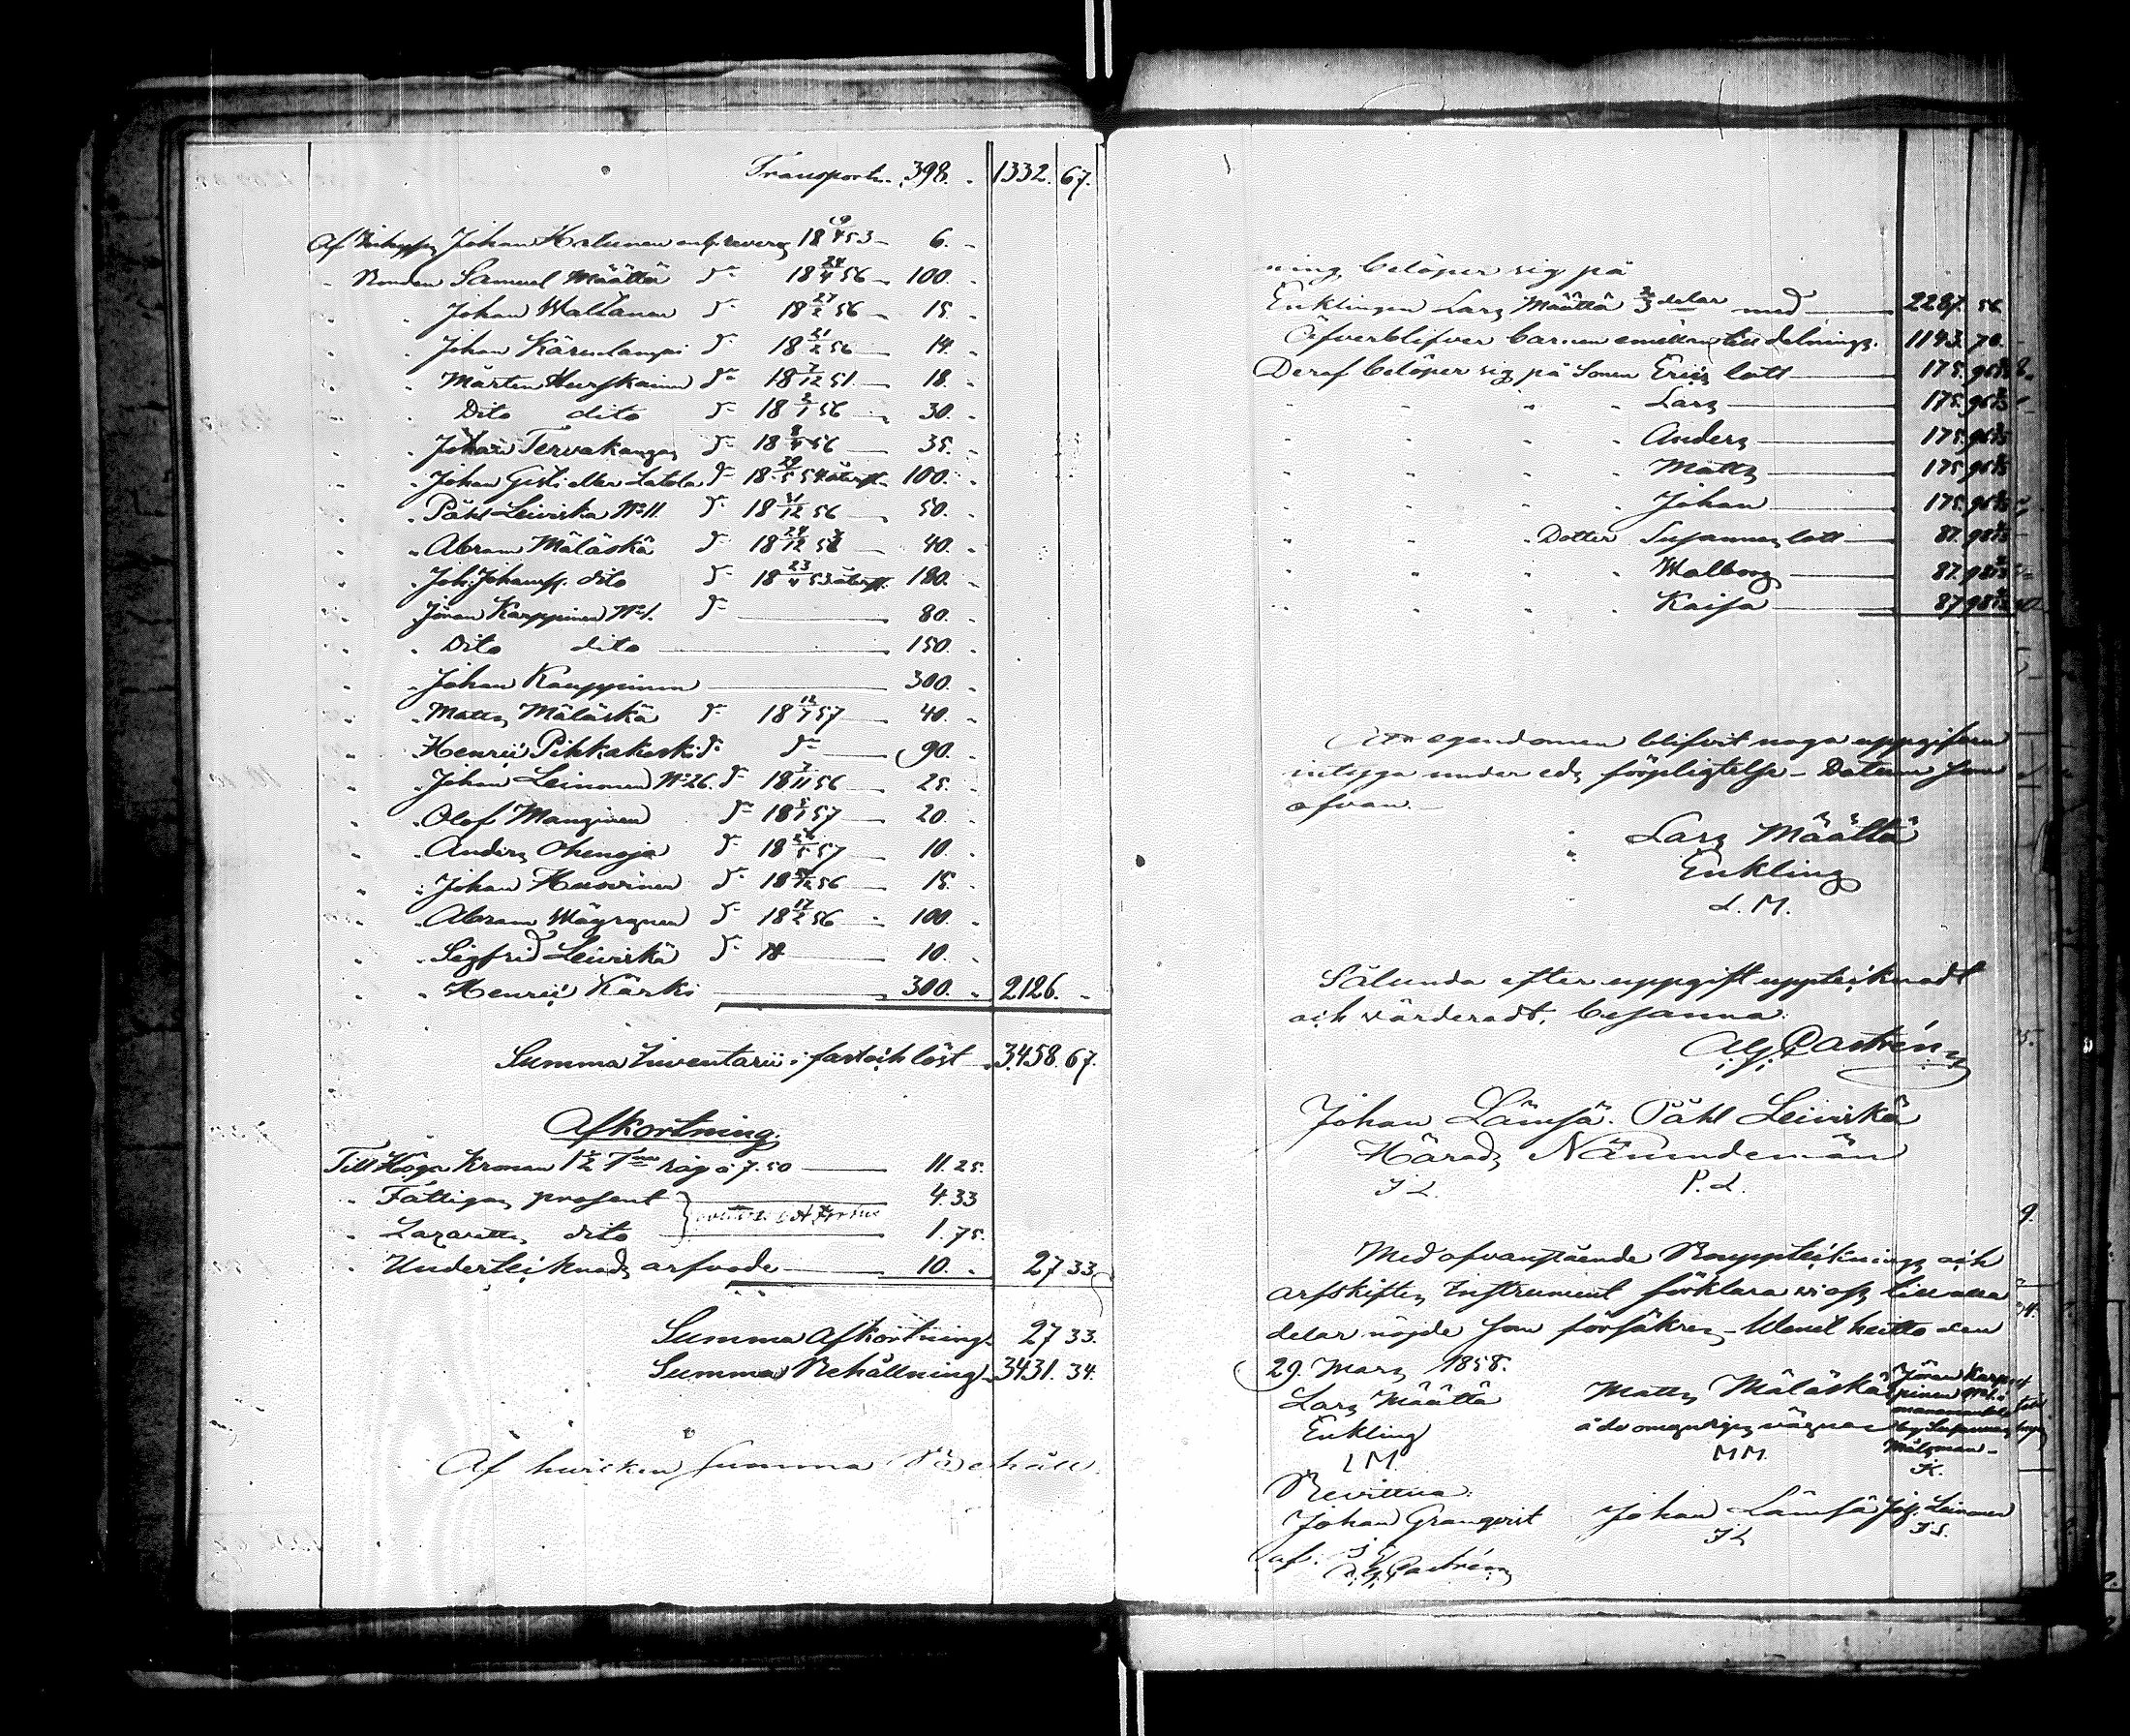 Transport 398. " 1332. 67.
Af Johan Hortunen enl. revers 18 19/4 53 — 6. "
" Bonden Samuel Määttä d:o 18 24/4 56 — 100. "
" " Johan Waltanen d:o 18 27/2 56 — 15. "
" " Johan Kärenlangas d:o 18 21/2 56 — 14. "
" " Mårten Hurskainen d:o 18 7/12 51 — 18. "
" " Dito dito d:o 18 2/1 56 — 30. "
" " Johan Tervakangas d:o 18 8/4 56 — 35. "
" " Johan Gisti eller Latola d:o 18 29/5 54 återst. 100. "
" " Påhl Leiviskä No 11. d:o 18 31/12 56 — 50. "
" " Abram Mäläskä d:o 18 24/12 56 — 40. "
" " Joh. Johanss. dito d:o 18 23/4 53 återst. 180. "
" " Jöran Karppinen No 1. d:o — 80. "
" " Dito dito — 150. "
" " Johan Kauppinen — 300. "
" " Matts Mäläskä d:o 18 12/1 57 — 40. "
" " Henric Pihkakoski d:o d:o — 90. "
" " Johan Leinonen No 26. d:o 18 7/11 56 — 25. "
" " Olof Manginen d:o 18 5/1 57 — 20. "
" " Anders Ohenoja d:o 18 26/5 57 — 10. "
" " Johan Huovinen d:o 18 /12 56 — 15. "
" " Abram Wäyrynen d:o 18 17/2 56 " 100. "
" " Sigfrid Leiviskä d:o 18 — 10. "
" " Henric Kärki — 300. " 2126. "
Summa Inventarii i fast och löst 3458. 67.
Afkortning.
Till Höga Kronan 1 1/2 T:nor råg á 7.50 — 11. 25.
" Fattiges prosent — 4. 33
" Lazaretts dito — 1. 75.
" Underteiknads arfvode — 10. " 27 33
Summa Afkortning 27 33.
Summa Behållning 3431. 34.
Af hvicken summa Behåll
ning belöper sig på
Enklingen Lars Määttä 2/3 delar med — 2287. 56
Öfverblifver barnen emellan till delning. 1143. 78.
Deraf belöper sig på Sonen Erics lott — 175. 96
" " " " Lars — 175. 96
" " " " Anders — 175. 96
" " " " Matts — 175. 96
" " " " Johan — 175. 96
" " " Dotter Susannas lott — 87. 98
" " " " Walborg — 87. 98
" " " " Kaisa — 87. 98
Att egendomen blifvit noga uppgifven
intyga under eds förpligtelse – Datum som
ofvan. —
Lars Määttä
Enkling
L. M.
Sålunda efter uppgift uppteiknadt
och värderadt, besanna:
A. G. Castrén
Johan Lämsä. Påhl Leiviskä
Härads Nämndemän
J L. P. L.
Med ofvanstående Bouppteikning och
arfskiftes Instrument förklara vi oss till alla
delar nöjde som försäkras – Utmed heitto den
29. Mars 1858.
Lars Määttä Matts Mäläskä Jöran Karp
Enkling å de omyndiges vägnar pinen
L M. M M. Målsman –
K.
Bevittna:
Johan Granqvist Johan Lämsä Joh. Leinonen
J G J L J L.
af: A. G. Castrén